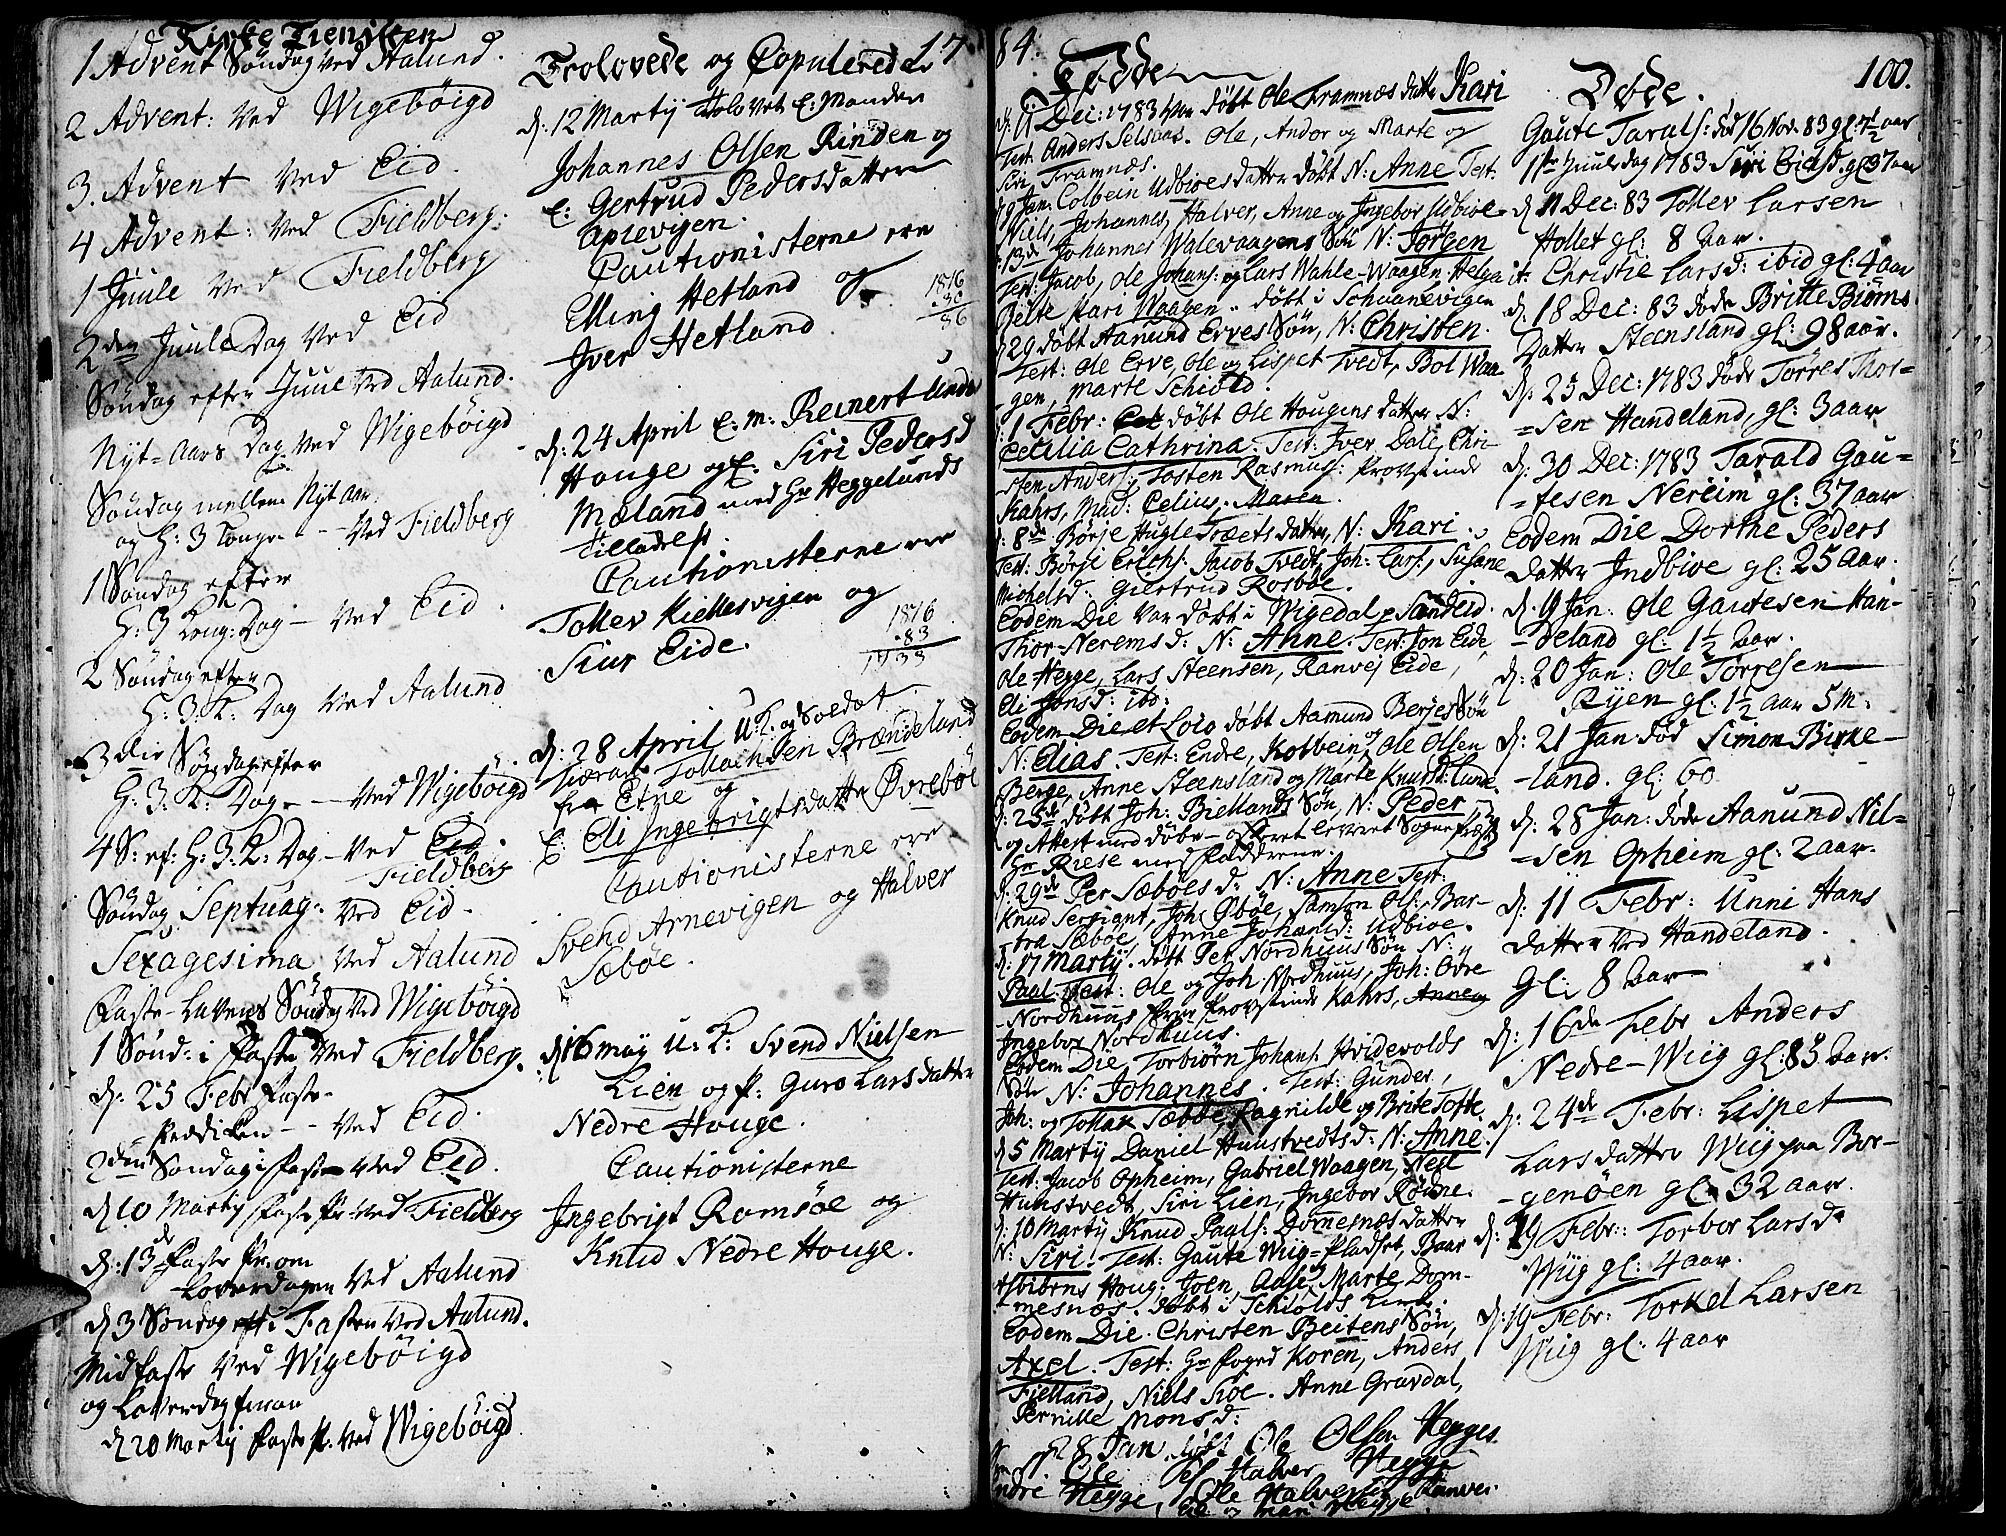 Kirke Tienisten
1 Advent Søndag ved Aalund.
2 Advent: ved Wigebøigd
3. Advent ved Eid.
4 Advent: ved Fieldberg:
1 Juule ved Fieldberg
2den Juule Dag ved Eid
Søndag efter Juul ved Aalund.
Nyt=Aars Dag ved Wigebøigd
Søndag mellem Nyt Aar
og H: 3 Konger - - ved Fieldberg
1 Søndag efter
H: 3 Kong: Dag - ved Eid.
2 Søndag efter
H: 3 K: Dag ved Aalund
3die Søndag efter
H: 3. K: Dag - - ved Wigebøigd
4 S: ef: H: 3. K: Dag - ved Eid.
Fieldberg
Søndag Septuag: ved Eid.
Sexagesima ved Aalund
Faste-Lavens Søndag ved Wigebøigd
1 Sønd: i Faste ved Fieldberg.
d: 25 Febr Faste-
Prædiken - - ved Eid.
2den Søndag i Faste ved Eid.
d 10 Martÿ Faste Pr ved Fieldberg
d: 13de Faste Pr: om
Løverdagen ved Aalund
d 3 Søndag i Fasten ved Aalund.
Midfaste ved Wigebøigd
og Løverdag
d 20 Martÿ Faste Pr. ved Wigebøigd.
Trolovede og Copulerede 17
d: 12 Martÿ trolovet E: Manden
Johannes Olsen Rinden og
E: Gertrud Pedersdatter
Aplevigen.
Cautionisterne ere
Elling Hetland og
Iver Hetland.
1816
30
86
d: 24 April E: m: Reinert Unde
Houge og E. Siri Pedersd
Mæland med Hr Heggelunds
tilladelse.
Cautionisterne ere
Tollev Kiellesvigen og
Siur Eide.
1816
83
1733
d: 28 April U: K: og Soldat
Tollachsen Brændeland
fra Etne og
E: Eli Ingebrigtsdatter Øvrebøe
Cautionisterne ere
Svend Arnevigen og Halver
Sæbøe.
d 16 maÿ U: K: Svend Nielsen
Lien og P: Guro Larsdatter
Nedre Houge.
Cautionisterne
Ingebrigt Romsøe og
Knud Nedre Houge.
84.
Fødde
d: 11 Dec: 1783 døbt Ole Framnæs datter Kari
Test: Anders Selsaas. Ole, Andor og Marte og
Siri Framnæs.
Jan. Colbein Udbioes datter døbt N: Anne Test:
Niels, Johannes, Halver, Anne og Ingebor Udbioe
13de Johannes Walevaagens Søn N: Jørgen
Test: Jacob, Ole Johans: og Lars Wahle-Waagen Helga
Belte Kari Waagen. døbt i Schaanevigen
29 døbt Aamund Erves Søn, N: Christen.
Test: Ole Erve, Ole og Lispet Tvedt, Bol Waa
gen, Marte Schiold.
1 Febr: døbt Ole Hougens datter N:
Cecilia Cathrina. Test: Iver Dale, Chri-
sten Anders: Tosten Rasmus: Provstinde
Kahrs, Mad: Celius, Maren.
8de Børje Hugle Træets datter, N: Kari.
Test: Børje Erichs: Jacob Tvedt, Joh: Lars:, Susane
Michelsd: Giertrud Rosbøe.
Eodem Die var døbt i Wigedal Sandeid.
Thor Neremsd: N: Anne. Test: Jon Eide
Ole Hegge, Lars Steensen, Ranvej Eide,
Eli Jonsd: ib:
Eodem Die et Loco døbt Aamund Berjes Søn
N: Elias. Test: Endre, Kolbein og Ole Olsen
Berge, Anne Steensland og Marte Knudsd: Lunde.
25de døbt Joh: Biellands Søn, N: Peder
og Attest med døbe- leveret Sognepræst
Hr Riese med Fadderne.
29de Per Sæbøes d: N: Anne Test:
Knud Sergiant, Joh: Øbøe, Samson Ols:, Bar-
bra Sæbøe, Anne Johansd: Udbioe.
17 Martÿ. døbt Pet: Nordhuus Søn N:
Paal Test: Ole og Joh: Nordhuus, Joh: Øvre
Nordhuus Provstinde Kahrs, Anne og
Ingebor Nordhuus.
Eodem Die Torbiørn Johans: Hvidevolds
Søn N: Johannes. Test: Gunder,
Joh: og Tollak Sæbøe, Ragnilde og Brite Tofte
d 5 Martÿ Daniel Hunstvedts d: N: Anne.
Test: Jacob Opheim, Gabriel Waagen,
Hunstvedt, Siri Lien, Ingebor Rødne.
10 Martÿ Knud Paals: Domesnæs datter
N: Siri. Test: Gaute Wiig-Pladset, Baar
Houg: Joen, Aase, Marte Dom-
mesnæs. døbt i Schiolds Kirke.
Eodem Die Christen Beitens Søn,
Axel. Test: Hr Foged Koren, Anders
Fielland, Niels Sioe. Anne Gravdal,
Pernille Monsd:
d 28 Jan døbt Ole Olsen Hegges
Ole Halver Hegge
Endre Hegge, Ole Halversen Ranvei
Hegge
Døde.
100.
Gaute Tarals: død 16 Nov. 83 gl: 7½ aar
1ste Juuledag 1783 Siri gl 37 aar
d 11 Dec: 83 Tollev Larsen
Hollet gl: 8 Aar.
it: Christie Larsd: ibid gl: 4 aar
d 18 Dec: 83 døde Britte Biørns
Datter Steensland gl: 98 aar.
d: 25 Dec: 1783 døde Torres Thor=
=sen Handeland, gl: 3 aar
d: 30 Dec: 1783 Tarald Gau=
=tesen Nereim gl: 37 aar
Eodem Die Dorthe Peders
datter Indbioe gl: 25 Aar.
d. 19 Jan: Ole Gautesen Han-
-deland gl: 1½ Aar.
d: 20 Jan: Ole Torresen
Ryen gl: 1½ aar 5 m:
d: 21 Jan død Simon Birke-
-land. gl: 60
d: 28 Jan: døde Aanund Nil=
=sen Opheim gl: 2 aar.
d: 11 Febr: Unni Hans
datter ved Handeland.
Gl: 8 Aar
d: 16de Febr Anders
Nedre-Wiig gl: 83 Aar.
d: 24de Febr: Lispet
Larsdatter Wiig paa Bor-
-genøen gl: 32 aar.
d: 19 Febr: Torbor Larsd:
Wiig gl: 4 aar.
d: 19 Febr: Torkel Larsen
Wiig gl: 4 aar